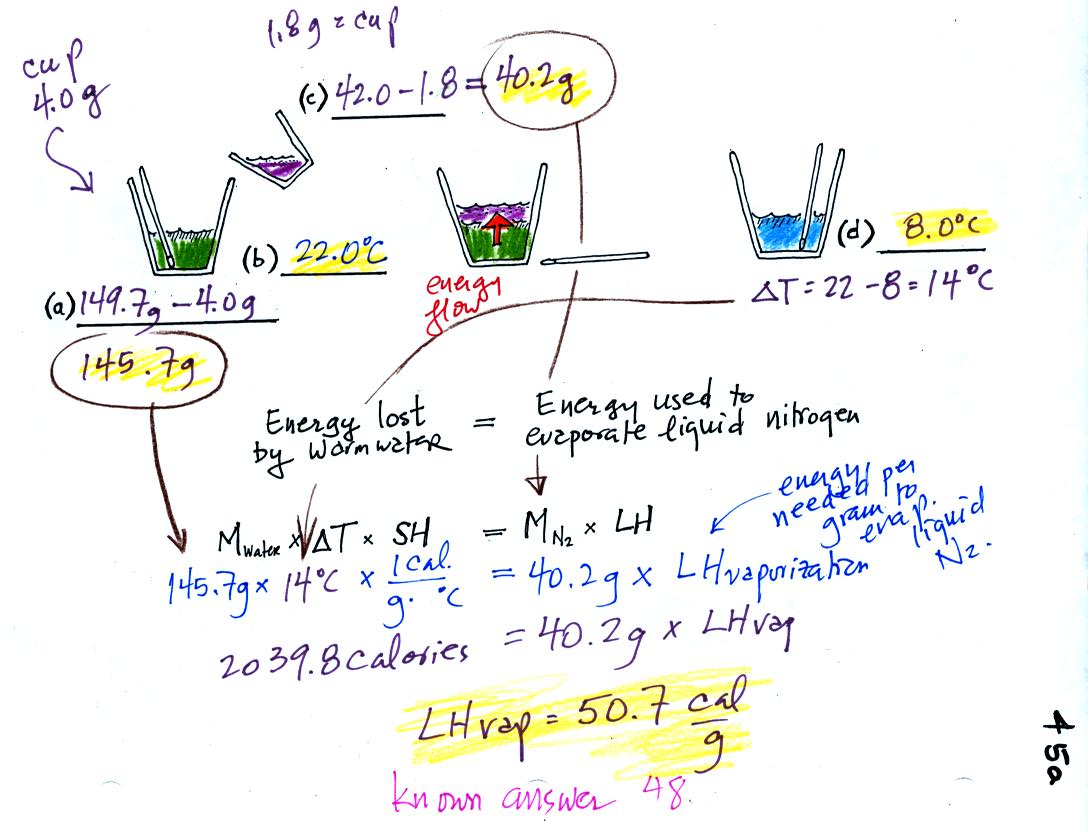 1.8g = cup
cup
4.0 g
(c) 42.0 - 1.8 = 40.2g
(b) 22.0°C
(d) 8.0°C
(a) 149.7g - 4.0g
energy
flow
ΔT = 22 - 8 = 14°C
145.7g
Energy lost
by warm water
=
Energy used to
evaporate liquid nitrogen
energy
needed per
gram to
evap.
liquid
N2.
Mwater x ΔT x SH = MN2 x LH
145.7g x 14°C x 1 cal. / g. °C = 40.2g x LHvaporization
2039.8 calories = 40.2g x LHvap
LHvap = 50.7 cal/g
known answer 48
45a